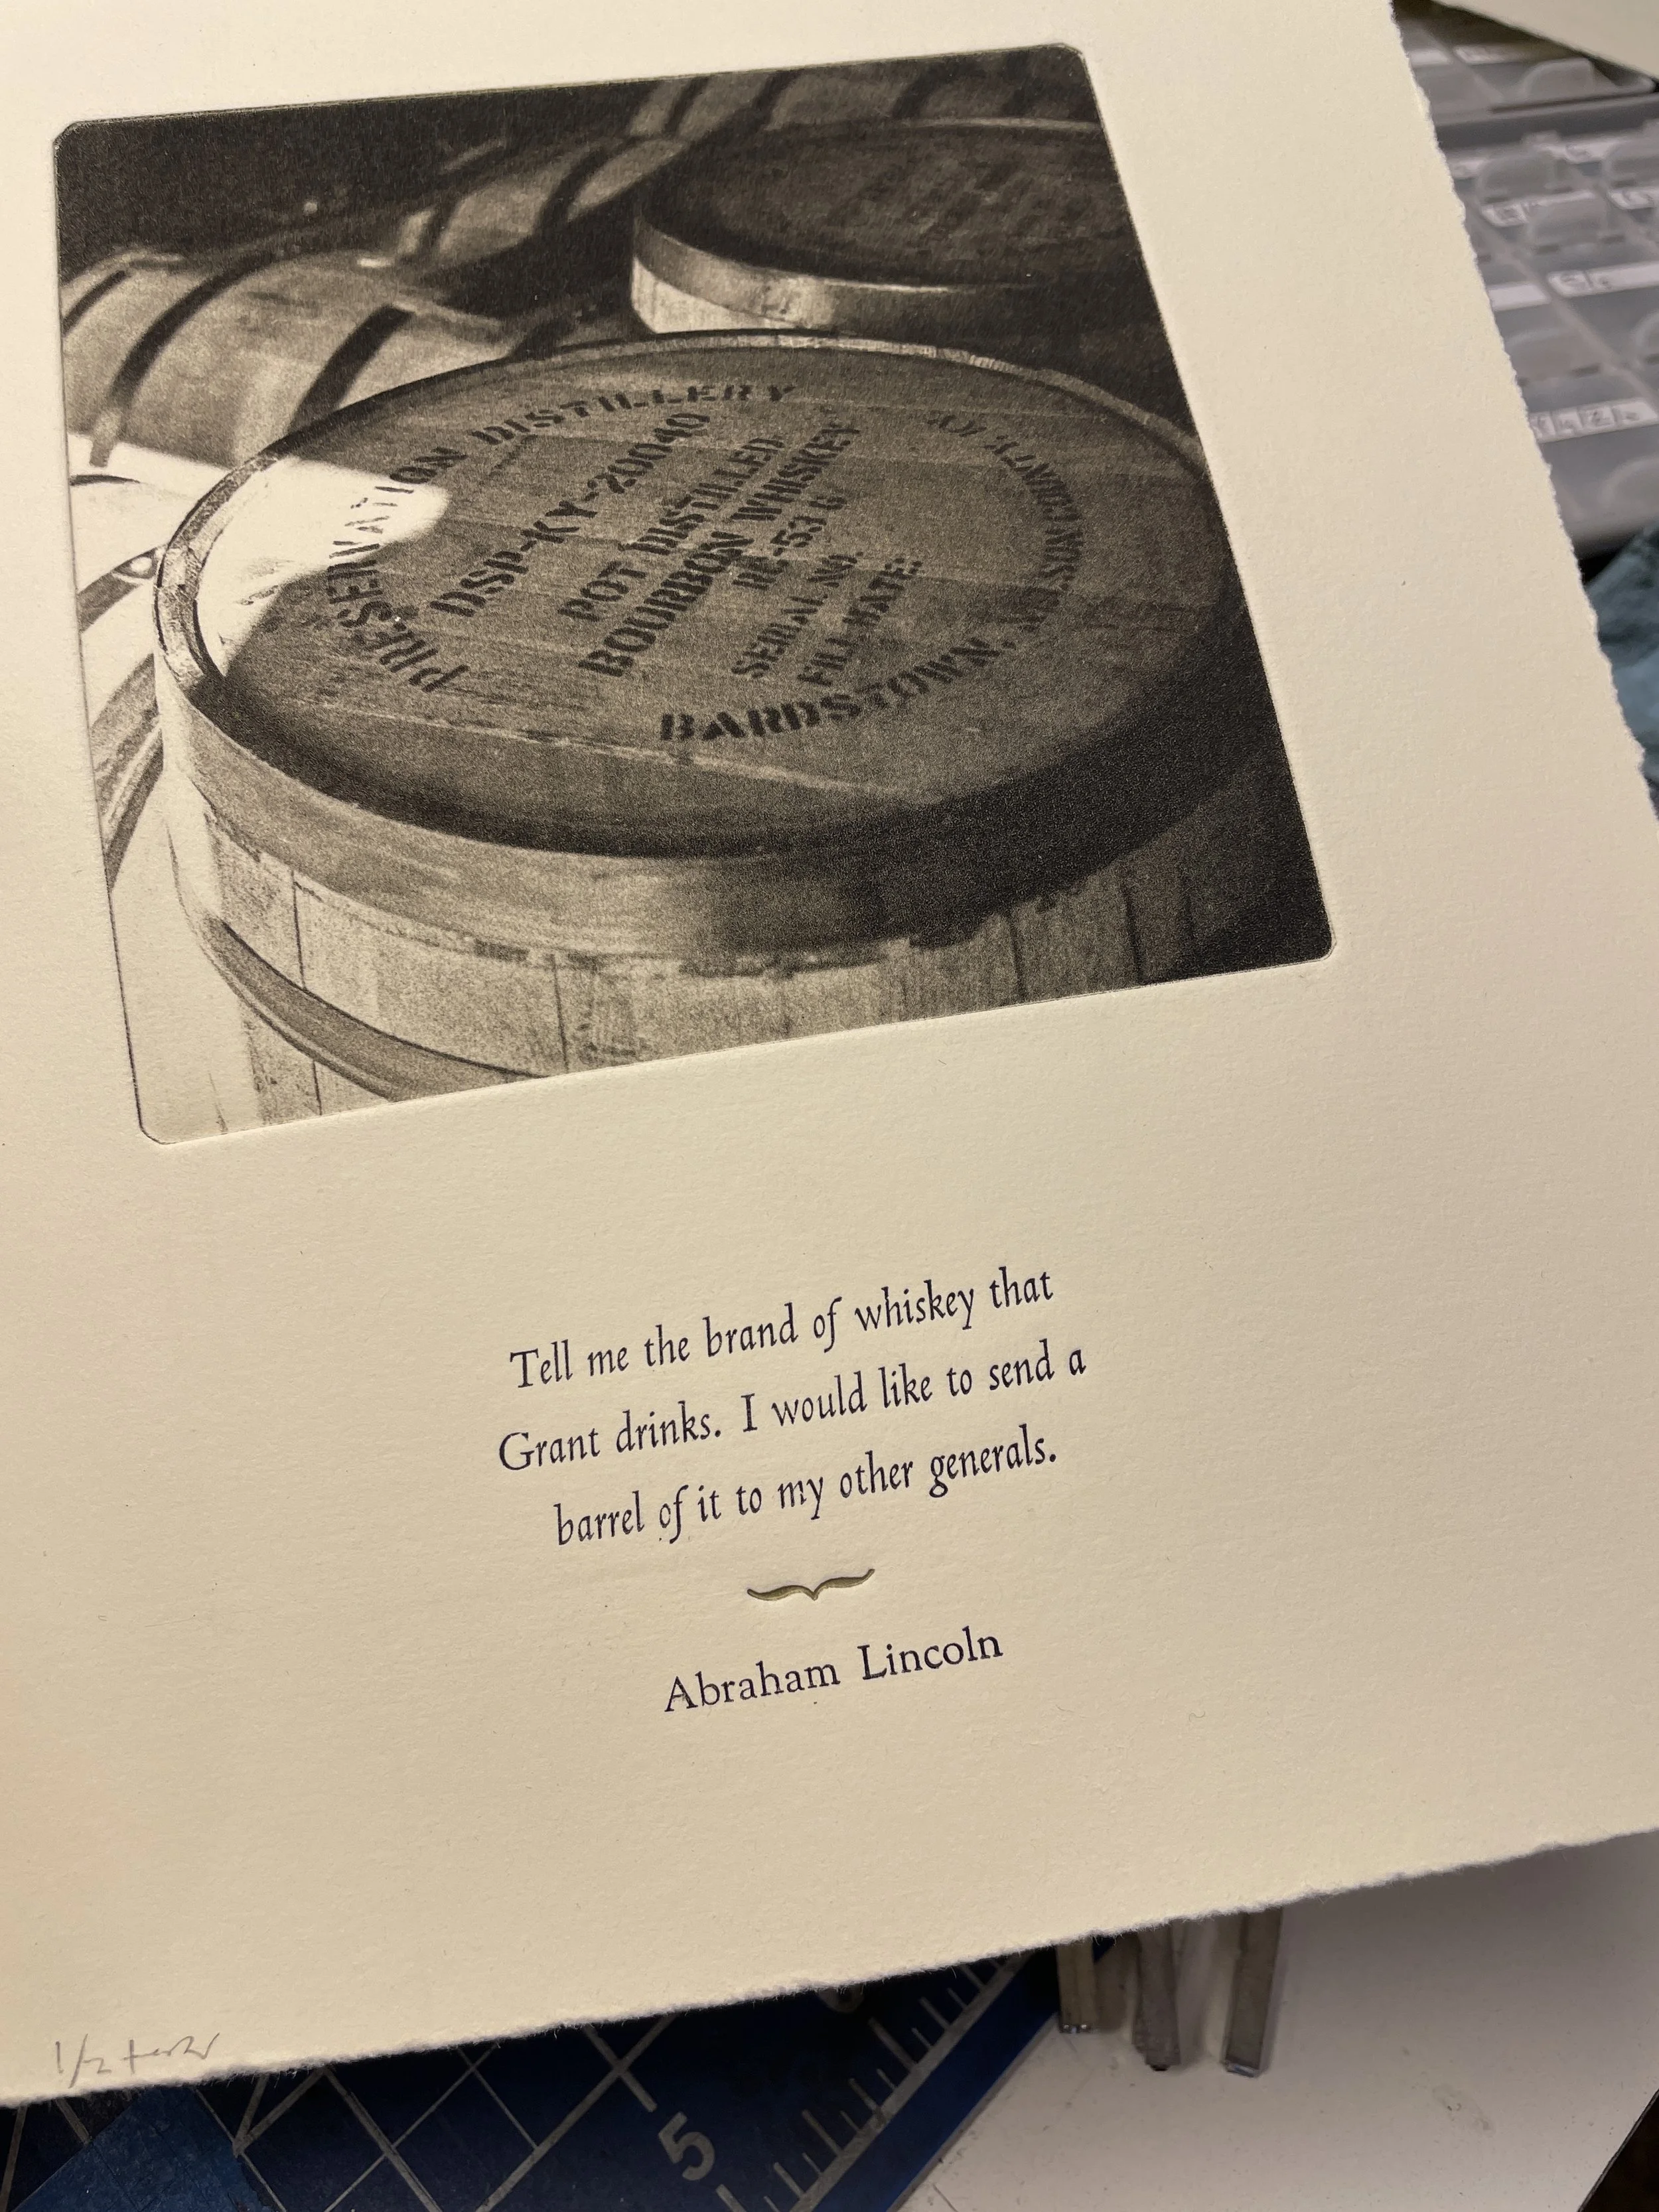 PRESERVATION DISTILLERY
DSP-KY-20040
POT DISTILLED
BOURBON WHISKEY
RC-53 G
SERIAL NO.
FILL DATE:
BARDSTOWN,
Tell me the brand of whiskey that
Grant drinks. I would like to send a
barrel of it to my other generals.
Abraham Lincoln
1/2
5